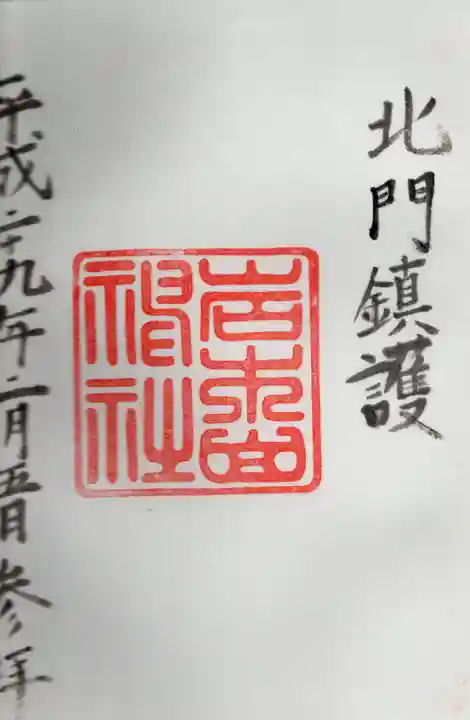 北門鎮護
岩木山
神社
平成二十九年二月五日参拝